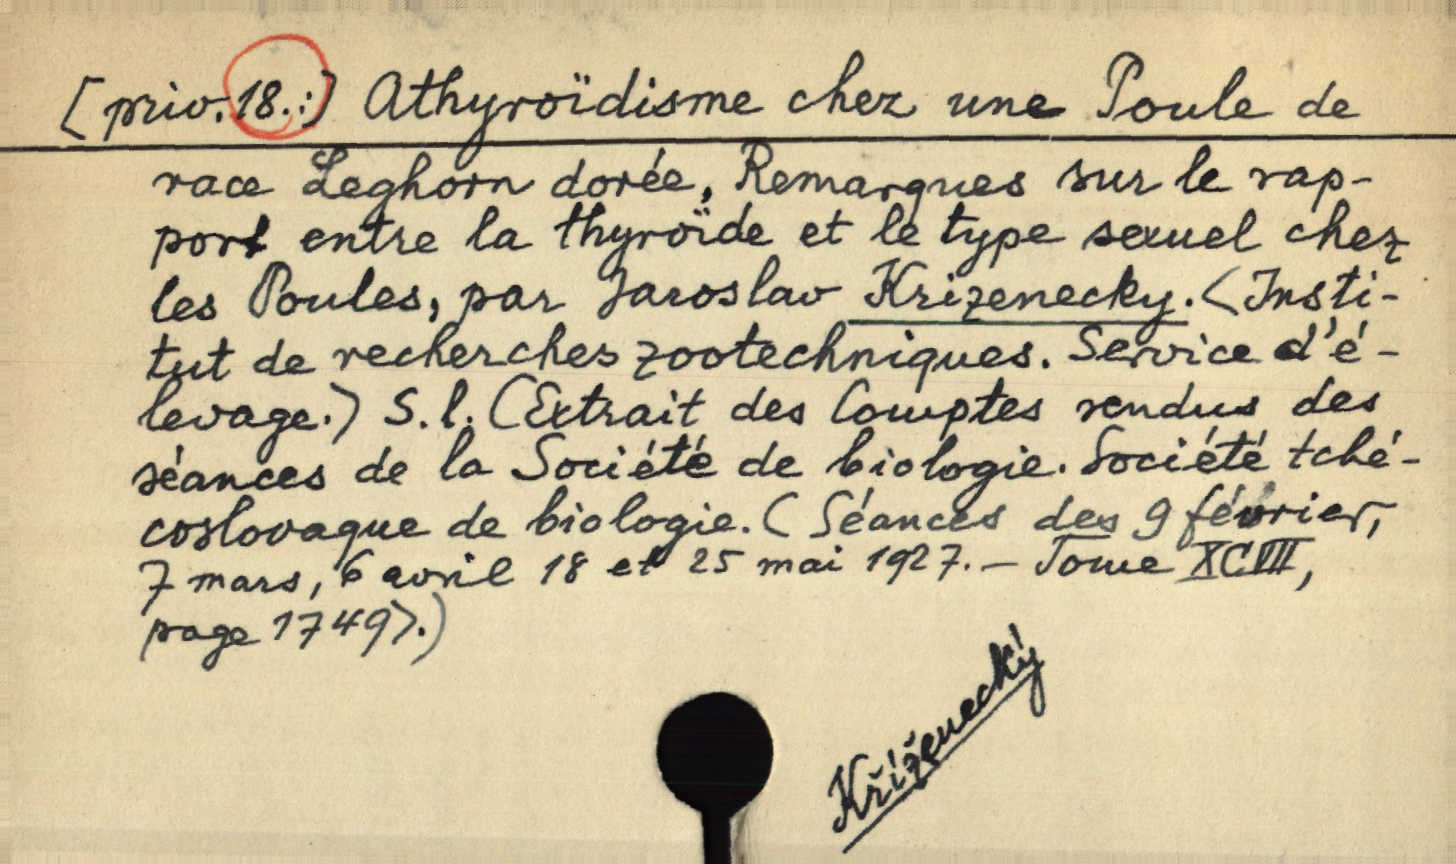 [priv. 18.:] Athyroïdisme chez une Poule de
race Leghorn dorée, Remarques sur le rap-
port entre la thyroïde et le type sexuel chez
les Poules, par Jaroslav Krizenecky. <Insti-
tut de recherches zootechniques. Service d'é-
levage.) S. l. (Extrait des Comptes rendus des
séances de la Société de biologie. Société tché-
coslovaque de biologie. (Séances des 9 février,
7 mars, 6 avril 18 et 25 mai 1927. — Tome XCVII,
page 1749>.)
Kříženecký